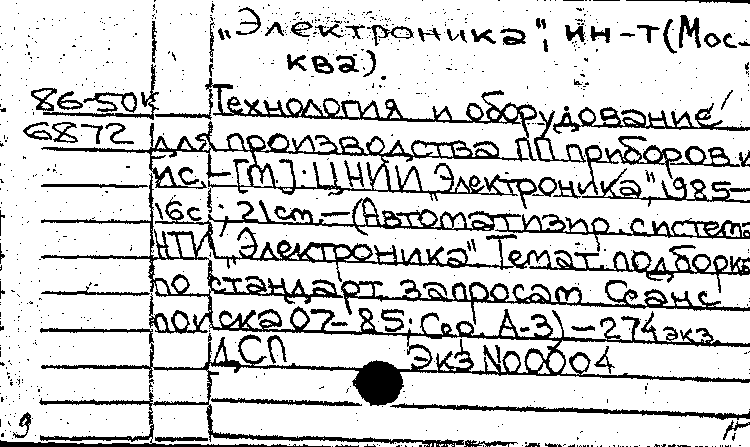 „Электроника", ин-т (Мос-
ква).
86-50к Технология и оборудование
6872 для производства ПП приборов и
ис. – [М]: ЦНИИ „Электроника", 1985 –
16с; 21 cm. – (Автоматизир. система
НТИ „Электроника". Темат. подборка
по стандарт. запросам Сеанс
поиска 07-'85; Сер. А-3) – 274 экз.
ДСП. Экз N00004
9